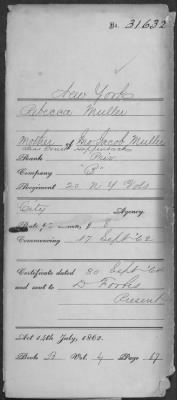 No. 31632
New York
Rebecca Muller
Mother of Geo Jacob Muller
Rank Priv
Company "B"
Regiment 20 N Y Vols
City Agency.
Rate $ 8
Commencing 17 Sept '62
Certificate dated 30 Sept
and sent to
Present
Act 14th July, 1862.
Book Vol. 4 Page 67